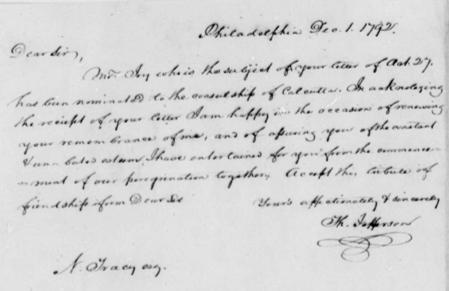 Philadelphia Dec. 1. 1792.
Dear Sir,
Mr. Joy who is the subject of your letter of Oct. 27.
has been nominated to the consulship of Calcutta. In acknoleging
the receipt of your letter I am happy in the occasion of renewing
your remembrance of me, and of assuring you of the constant
& unabated esteem I have entertained for you from the commence-
-ment of our peregrination together. Accept this tribute of
friendship from Dear Sir
Your's affectionately & sincerely
Th. Jefferson
N. Tracy esq.